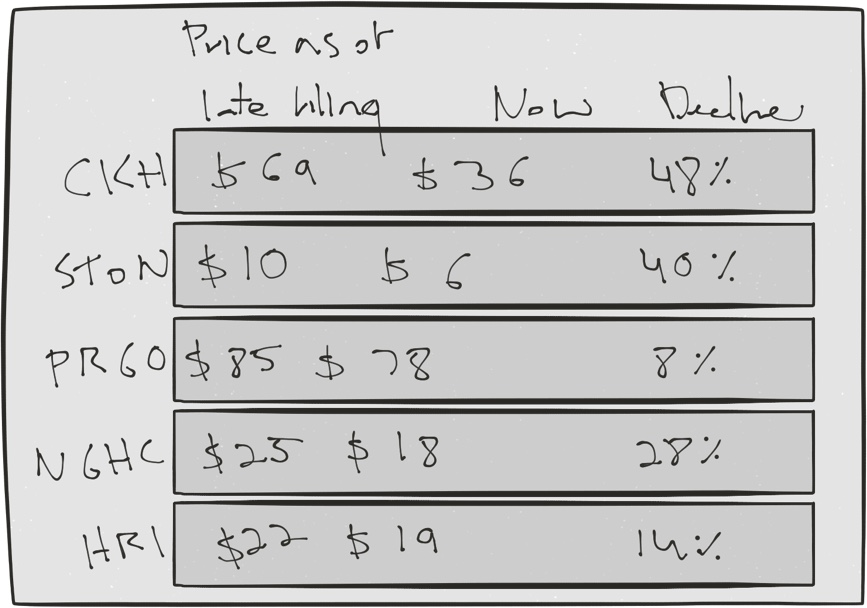 Price as of
late filing Now Decline
CKH $69 $36 48%
STON $10 $6 40%
PRGO $85 $78 8%
NGHC $25 $18 28%
HRI $22 $19 14%